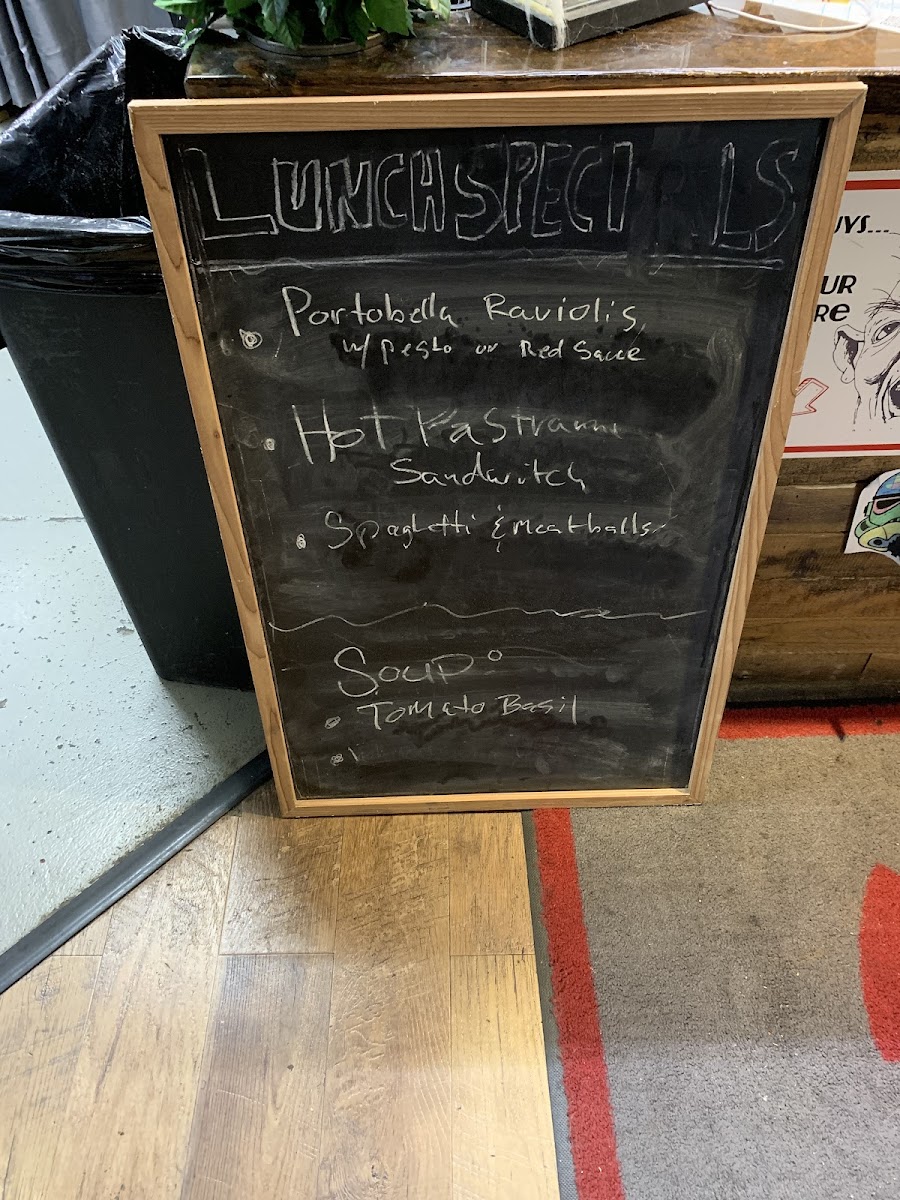 LUNCH SPECI LS
Portobella Raviolis
w/ pesto or Red Sauce
Hot Pastrami
Sandwitch
Spaghetti & Meatballs
Soup:
Tomato Basil
UYS...
UR
RE